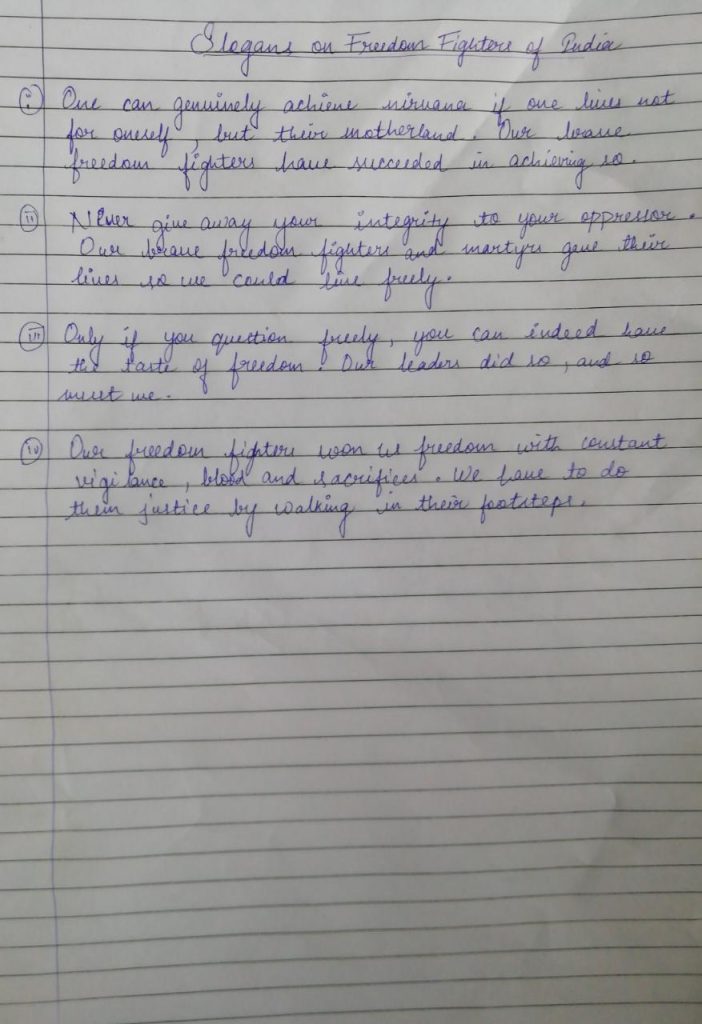 Slogans on Freedom Fighters of India
i One can genuinely achieve nirvana if one lives not
for oneself, but their motherland. Our brave
freedom fighters have succeeded in achieving so.
ii Never give away your integrity to your oppressor.
Our brave freedom fighters and martyrs gave their
lives so we could live freely.
iii Only if you question freely, you can indeed have
the taste of freedom. Our leaders did so, and so
must we.
iv Our freedom fighters won us freedom with constant
vigilance, blood and sacrifices. We have to do
them justice by walking in their footsteps.